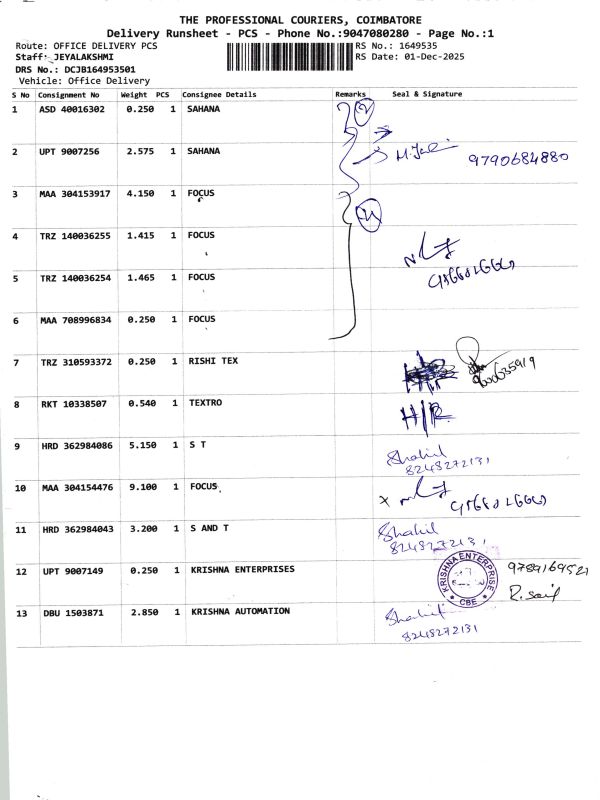 THE PROFESSIONAL COURIERS, COIMBATORE
Delivery Runsheet - PCS - Phone No.:9047080280 - Page No.:1
Route: OFFICE DELIVERY PCS
RS No.: 1649535
Staff: JEYALAKSHMI
RS Date: 01-Dec-2025
DRS No.: DCJB164953501
Vehicle: Office Delivery
S No Consignment No Weight PCS Consignee Details Remarks Seal & Signature
1 ASD 40016302 0.250 1 SAHANA 2
2 UPT 9007256 2.575 1 SAHANA 9790684880
3 MAA 304153917 4.150 1 FOCUS 4
4 TRZ 140036255 1.415 1 FOCUS
5 TRZ 140036254 1.465 1 FOCUS
6 MAA 708996834 0.250 1 FOCUS
7 TRZ 310593372 0.250 1 RISHI TEX
8 RKT 10338507 0.540 1 TEXTRO H/R
9 HRD 362984086 5.150 1 S T Shahil
8248272131
10 MAA 304154476 9.100 1 FOCUS x
11 HRD 362984043 3.200 1 S AND T Shahil
8248272131
12 UPT 9007149 0.250 1 KRISHNA ENTERPRISES KRISHNA ENTERPRISE
CBE
R. sait
13 DBU 1503871 2.850 1 KRISHNA AUTOMATION Shahil
8248272131